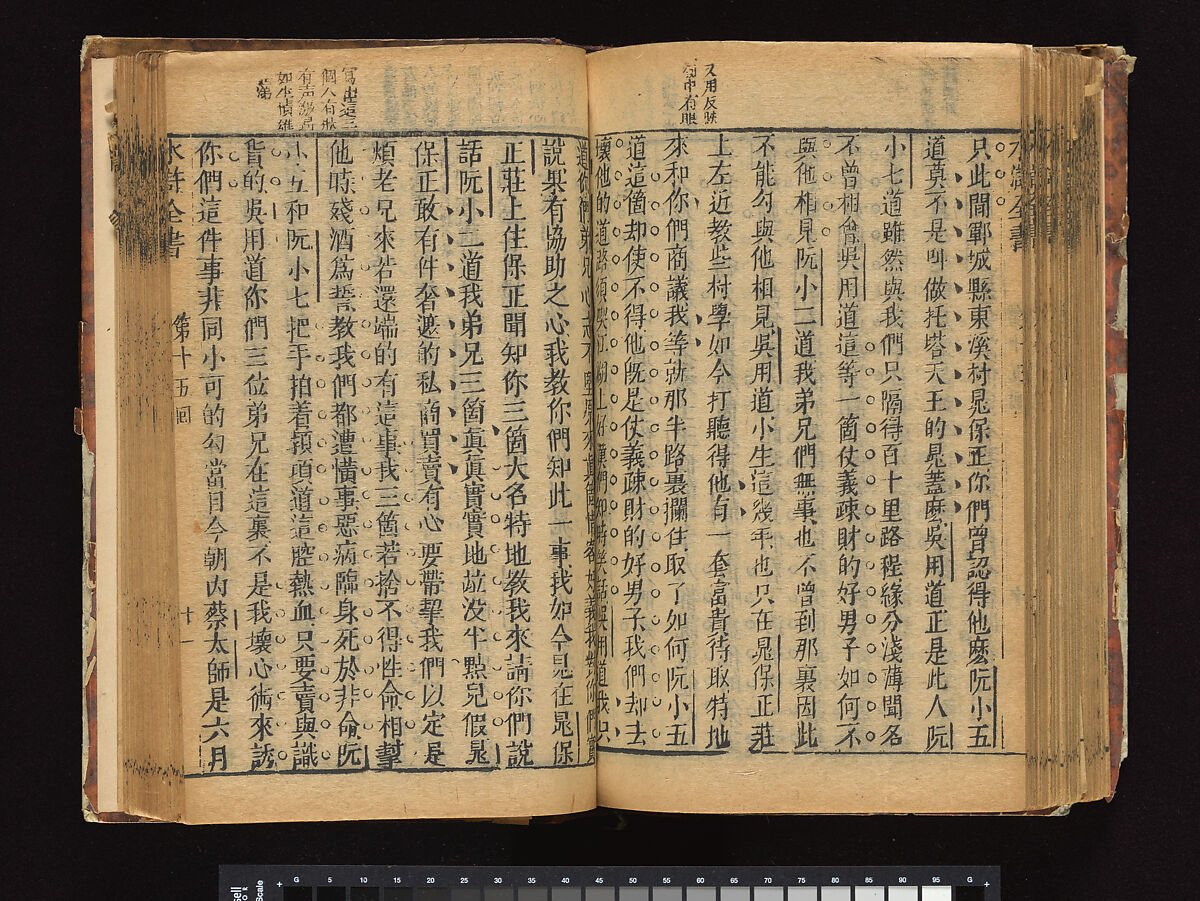 又用反跌
句中有眼
只此間鄆城縣東溪村晁保正你們曾認得他麽阮小五
道莫不是叫做托塔天王的晁蓋麽吳用道正是此人阮
小七道雖然與我們只隔得百十里路程緣分淺薄聞名
不曾相會吳用道這等一箇仗義疎財的好男子如何不
與他相見阮小二道我弟兄們無事也不曾到那裏因此
不能勾與他相見吳用道小生這幾年也只在晁保正莊
上左近教些村學如今打聽得他有一套富貴待取特地
來和你們商議我等就那半路裏攔住取了如何阮小五
道這箇却使不得他旣是仗義疎財的好男子我們却去
壞他的道路須喫江湖上好漢們知時笑話吳用道我只
寫出這三
個人有狀
有声
道你們弟兄心志不堅原來真箇惜客好義我對你們實
說果有協助之心我教你們知此一事我如今見在晁保
正莊上住保正聞知你三箇大名特地教我來請你們說
話阮小二道我弟兄三箇真真實實地並没半點兒假晁
保正敢有件奢遮的私商買賣有心要帶挈我們以定是
煩老兄來若還端的有這事我三箇若捨不得性命相幫
他時殘酒爲誓教我們都遭橫事惡病臨身死於非命阮
小五和阮小七把手拍着頸項道這腔熱血只要賣與識
貨的吳用道你們三位弟兄在這裏不是我壞心術來誘
你們這件事非同小可的勾當目今朝內蔡太師是六月
水滸全書
第十五囘
十一